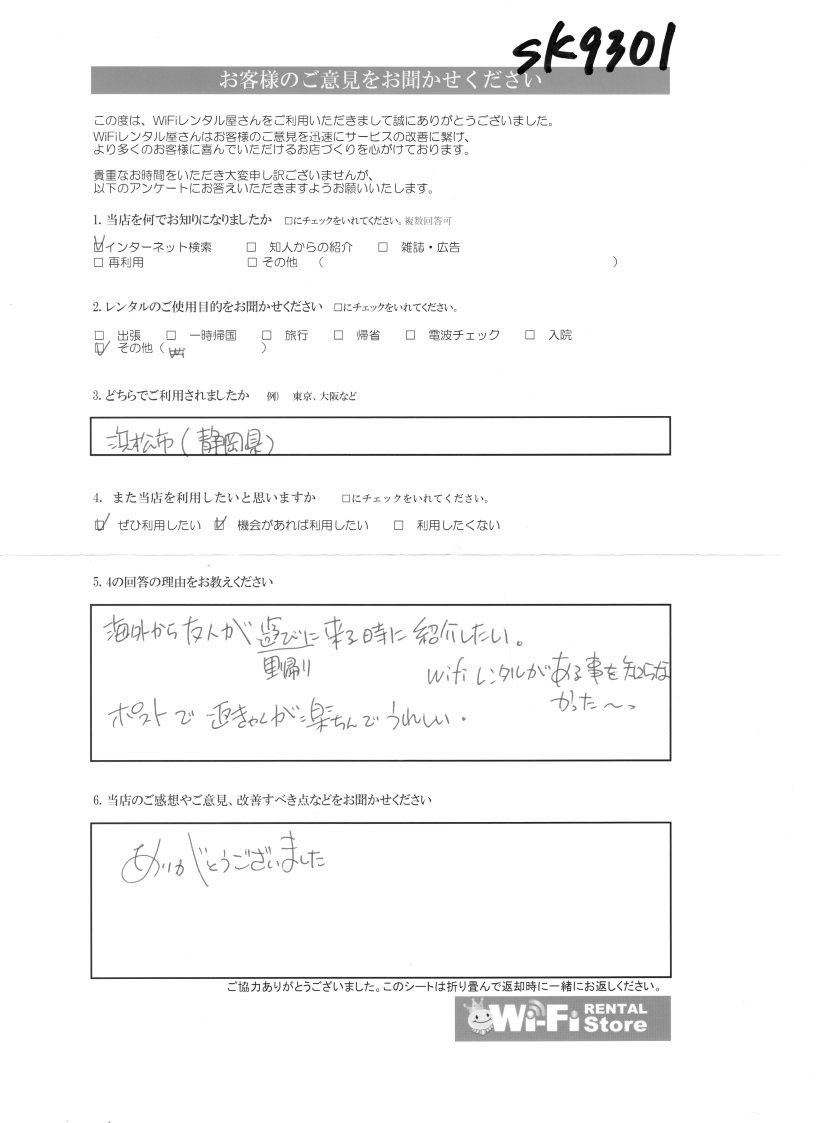 sk9301
お客様のご意見をお聞かせください
この度は、WiFiレンタル屋さんをご利用いただきまして誠にありがとうございました。
WiFiレンタル屋さんはお客様のご意見を迅速にサービスの改善に繋げ、
より多くのお客様に喜んでいただけるお店づくりを心がけております。
貴重なお時間をいただき大変申し訳ございませんが、
以下のアンケートにお答えいただきますようお願いいたします。
1. 当店を何でお知りになりましたか □にチェックをいれてください。複数回答可
☑インターネット検索 □ 知人からの紹介 □ 雑誌・広告
□ 再利用 □ その他 ( )
2. レンタルのご使用目的をお聞かせください □にチェックをいれてください。
□ 出張 □ 一時帰国 □ 旅行 □ 帰省 □ 電波チェック □ 入院
☑ その他 ( )
3. どちらでご利用されましたか 例) 東京、大阪など
浜松市(静岡県)
4. また当店を利用したいと思いますか □にチェックをいれてください。
☑ ぜひ利用したい ☑ 機会があれば利用したい □ 利用したくない
5. 4の回答の理由をお教えください
海外から友人が遊びに来る時に紹介したい。
里帰り
wifiレンタルがある事を知らな
かった〜っ
ポストで返きゃくが楽ちんでうれしい。
6. 当店のご感想やご意見、改善すべき点などをお聞かせください
ありがとうございました
ご協力ありがとうございました。このシートは折り畳んで返却時に一緒にお返しください。
Wi-Fi RENTAL
Store